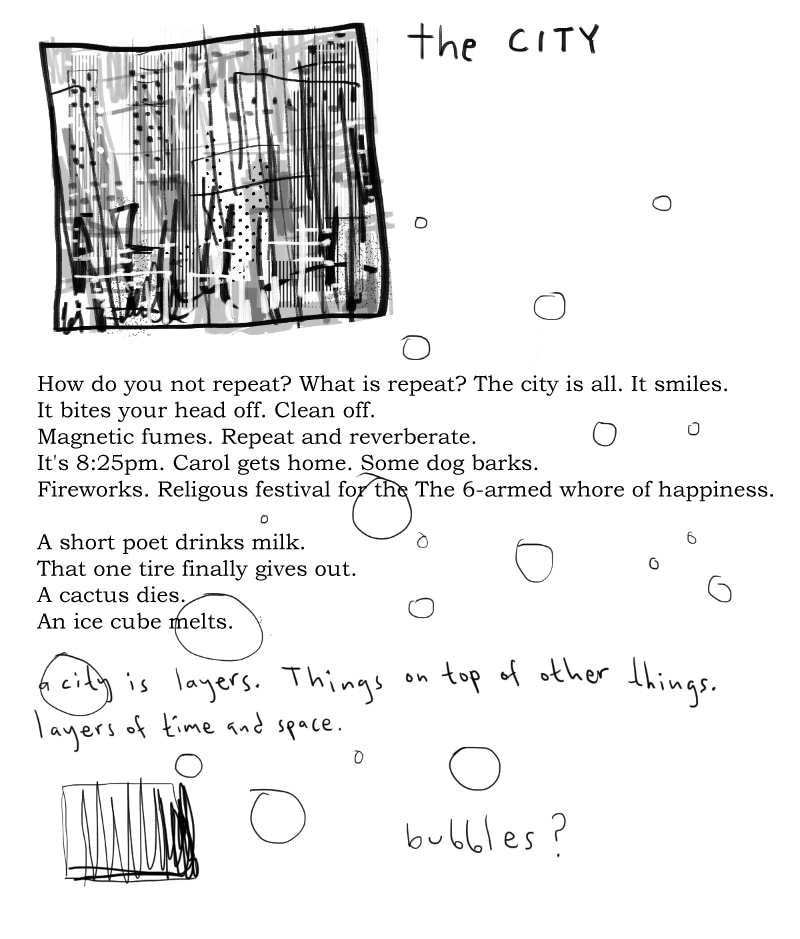 the CITY
How do you not repeat? What is repeat? The city is all. It smiles.
It bites your head off. Clean off.
Magnetic fumes. Repeat and reverberate.
It's 8:25pm. Carol gets home. Some dog barks.
Fireworks. Religous festival for the The 6-armed whore of happiness.
A short poet drinks milk.
That one tire finally gives out.
A cactus dies.
An ice cube melts.
a city is layers. Things on top of other things.
layers of time and space.
bubbles?